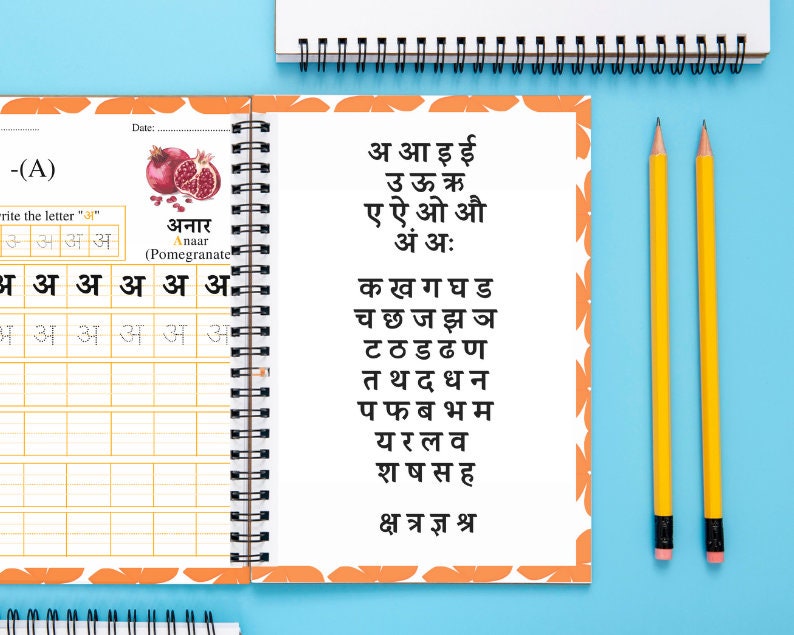 Date: ..........................
-(A)
अनार
Anaar
(Pomegranate
the letter "अ"
अ अ अ अ
अ अ अ अ अ अ
अ अ अ अ अ अ
अ आ इ ई
उ ऊ ऋ
ए ऐ ओ औ
अं अः
क ख ग घ ड
च छ ज झ ञ
ट ठ ड ढ ण
त थ द ध न
प फ ब भ म
य र ल व
श ष स ह
क्ष त्र ज्ञ श्र